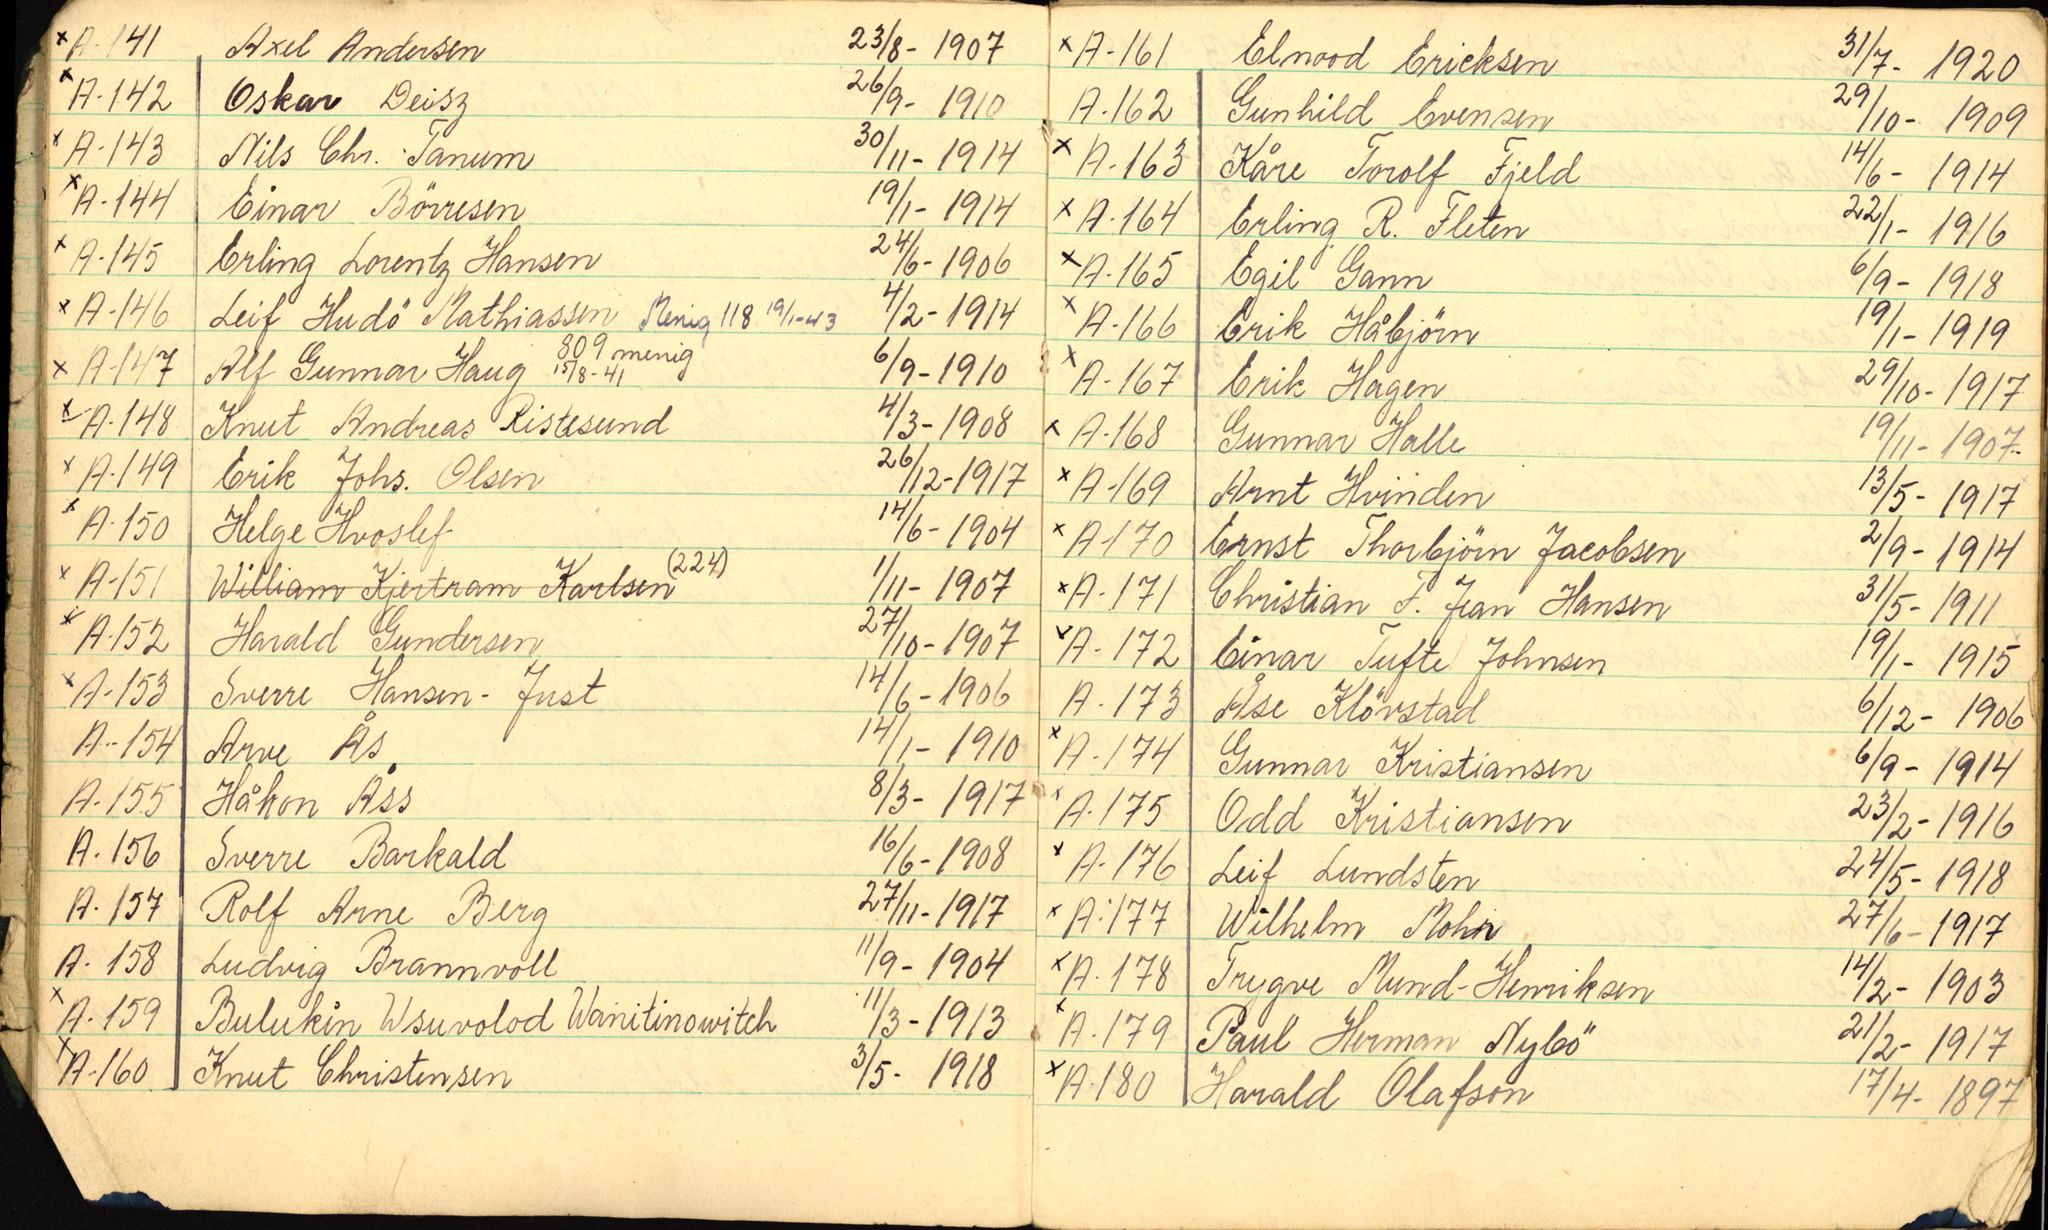 x A-141 Axel Andersen 23/8- 1907
x A-142 Oskar Deisz 26/9- 1910
x A-143 Nils Chr. Tanum 30/11- 1914
x A-144 Einar Börresen 19/1- 1914
x A-145 Erling Lorentz Hansen 24/6- 1906
x A-146 Leif Hudö Mathiassen Menig 118 19/1-43 4/2- 1914
x A-147 Alf Gunnar Haug 809 menig 15/8-41 6/9- 1910
x A-148 Knut Andreas Ristesund 4/3- 1908
x A-149 Erik Johs. Olsen 26/12-1917
x A-150 Helge Hvoslef 14/6- 1904
x A-151 William Kjertram Karlsen (224) 1/11- 1907
x A-152 Harald Gundersen 27/10- 1907
x A-153 Sverre Hansen-Just 14/6- 1906
A-154 Arve Ås 14/1- 1910
A-155 Håkon Åss 8/3- 1917
A-156 Sverre Barkald 16/6- 1908
A-157 Rolf Arne Berg 27/11- 1917
A-158 Ludvig Brannvoll 11/9- 1904
x A-159 Bulukin Wsuvolod Wanitinowitch 11/3- 1913
x A-160 Knut Christensen 3/5- 1918
x A-161 Elnood Ericksen 31/7- 1920
A-162 Gunhild Evensen 29/10- 1909
x A-163 Kåre Torolf Fjeld 14/6- 1914
x A-164 Erling R. Fleten 22/1- 1916
x A-165 Egil Gann 6/9- 1918
x A-166 Erik Håbjörn 19/1- 1919
x A-167 Erik Hagen 29/10- 1917
x A-168 Gunnar Halle 19/11- 1907-
x A-169 Arnt Hvinden 13/5- 1917
x A-170 Ernst Thorbjörn Jacobsen 2/9- 1914
x A-171 Christian F. Jean Hansen 31/5- 1911
x A-172 Einar Tufte Johnsen 19/1- 1915
A-173 Åse Klövstad 6/12- 1906
x A-174 Gunnar Kristiansen 6/9- 1914
x A-175 Odd Kristiansen 23/2- 1916
x A-176 Leif Lundsten 24/5- 1918
x A-177 Wilhelm Mohr 27/6- 1917
x A-178 Trygve Mund-Henriksen 14/2- 1903
x A-179 Paul Herman Nybö 21/2- 1917
x A-180 Harald Olafson 17/4- 1897